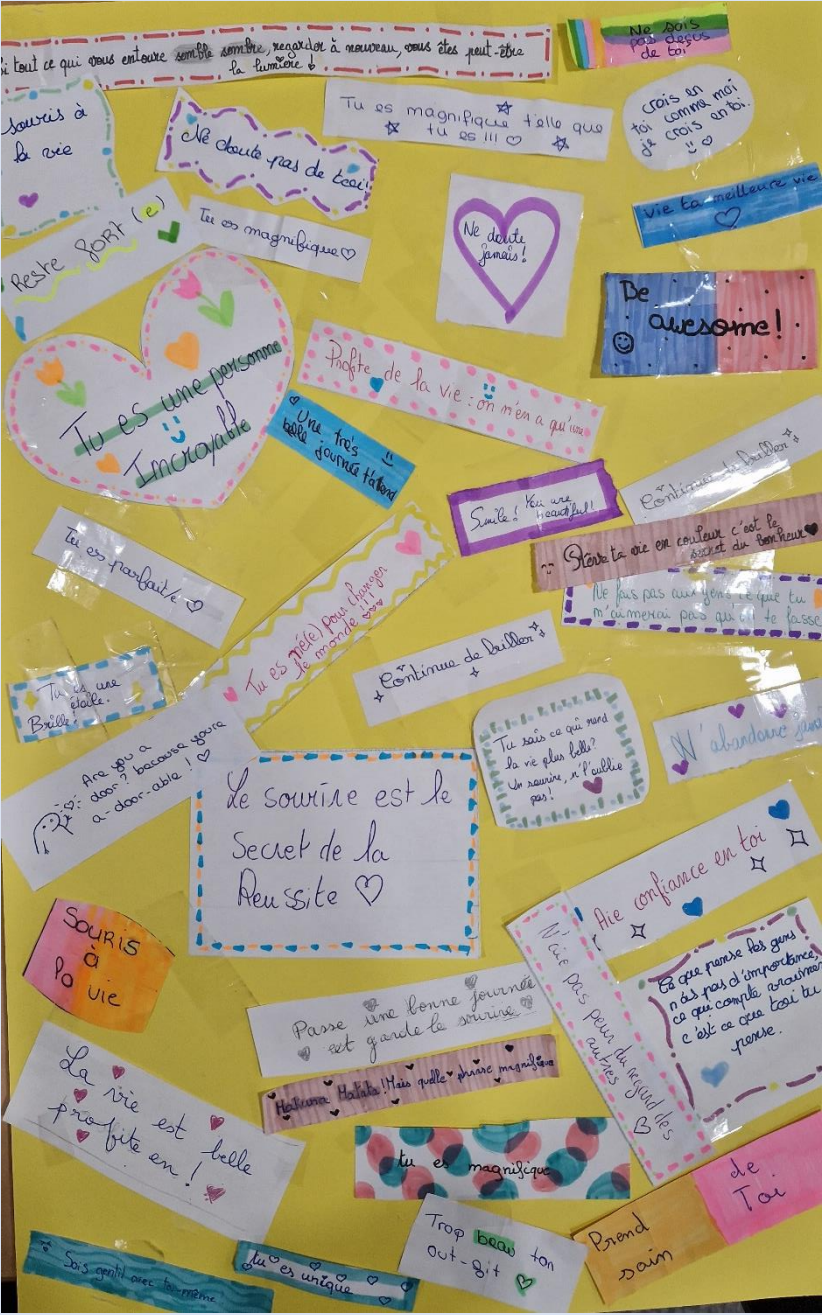 i tout ce qui vous entoure semble sombre, regarder à nouveau, vous êtes peut-être
la lumière !
Ne sois
pas deçus
de toi
souris à
la vie
Ne doute pas de toi!
Tu es magnifique t'elle que
tu es !!!
crois en
toi comme moi
je crois en toi.
Reste FORT(e)
Tu es magnifique
Ne doute
jamais!
vie ta meilleure vie
Be
awesome!
Tu es une personne
Incroyable
Profite de la vie : on n'en a qu'une
Une très
belle journée t'attend
Smile! You are
beautiful!
Continue de briller
ta vie en couleur c'est le
secret du bonheur
Tu es parfait/e
Tu es né(e) pour changer
le monde !!!
Ne fais pas aux gens ce que tu
m'aimerai pas qu'on te fasse
Continue de briller
Tu es une
étoile.
Brille!
Are you a
door? because you're
a-door-able!
Tu sais ce qui rend
la vie plus belle?
Un sourire, n'l'oublie
pas!
N'abandonne jamai
Le sourire est le
Secret de la
Reussite
Aie confiance en toi
Souris
à
la vie
N'aie pas peur du regard des
autres
Ce que pense les gens
n'as pas d'importance,
ce qui compte vraiment
c'est ce que toi tu
pense.
Passe une bonne journée
et garde le sourire
Hakuna Matata! Mais quelle phrase magnifique
La vie est belle
profite en !
tu es magnifique
Prend
soin
de
Toi
Trop beau ton
out-fit
Sois gentil avec toi-même
tu es unique